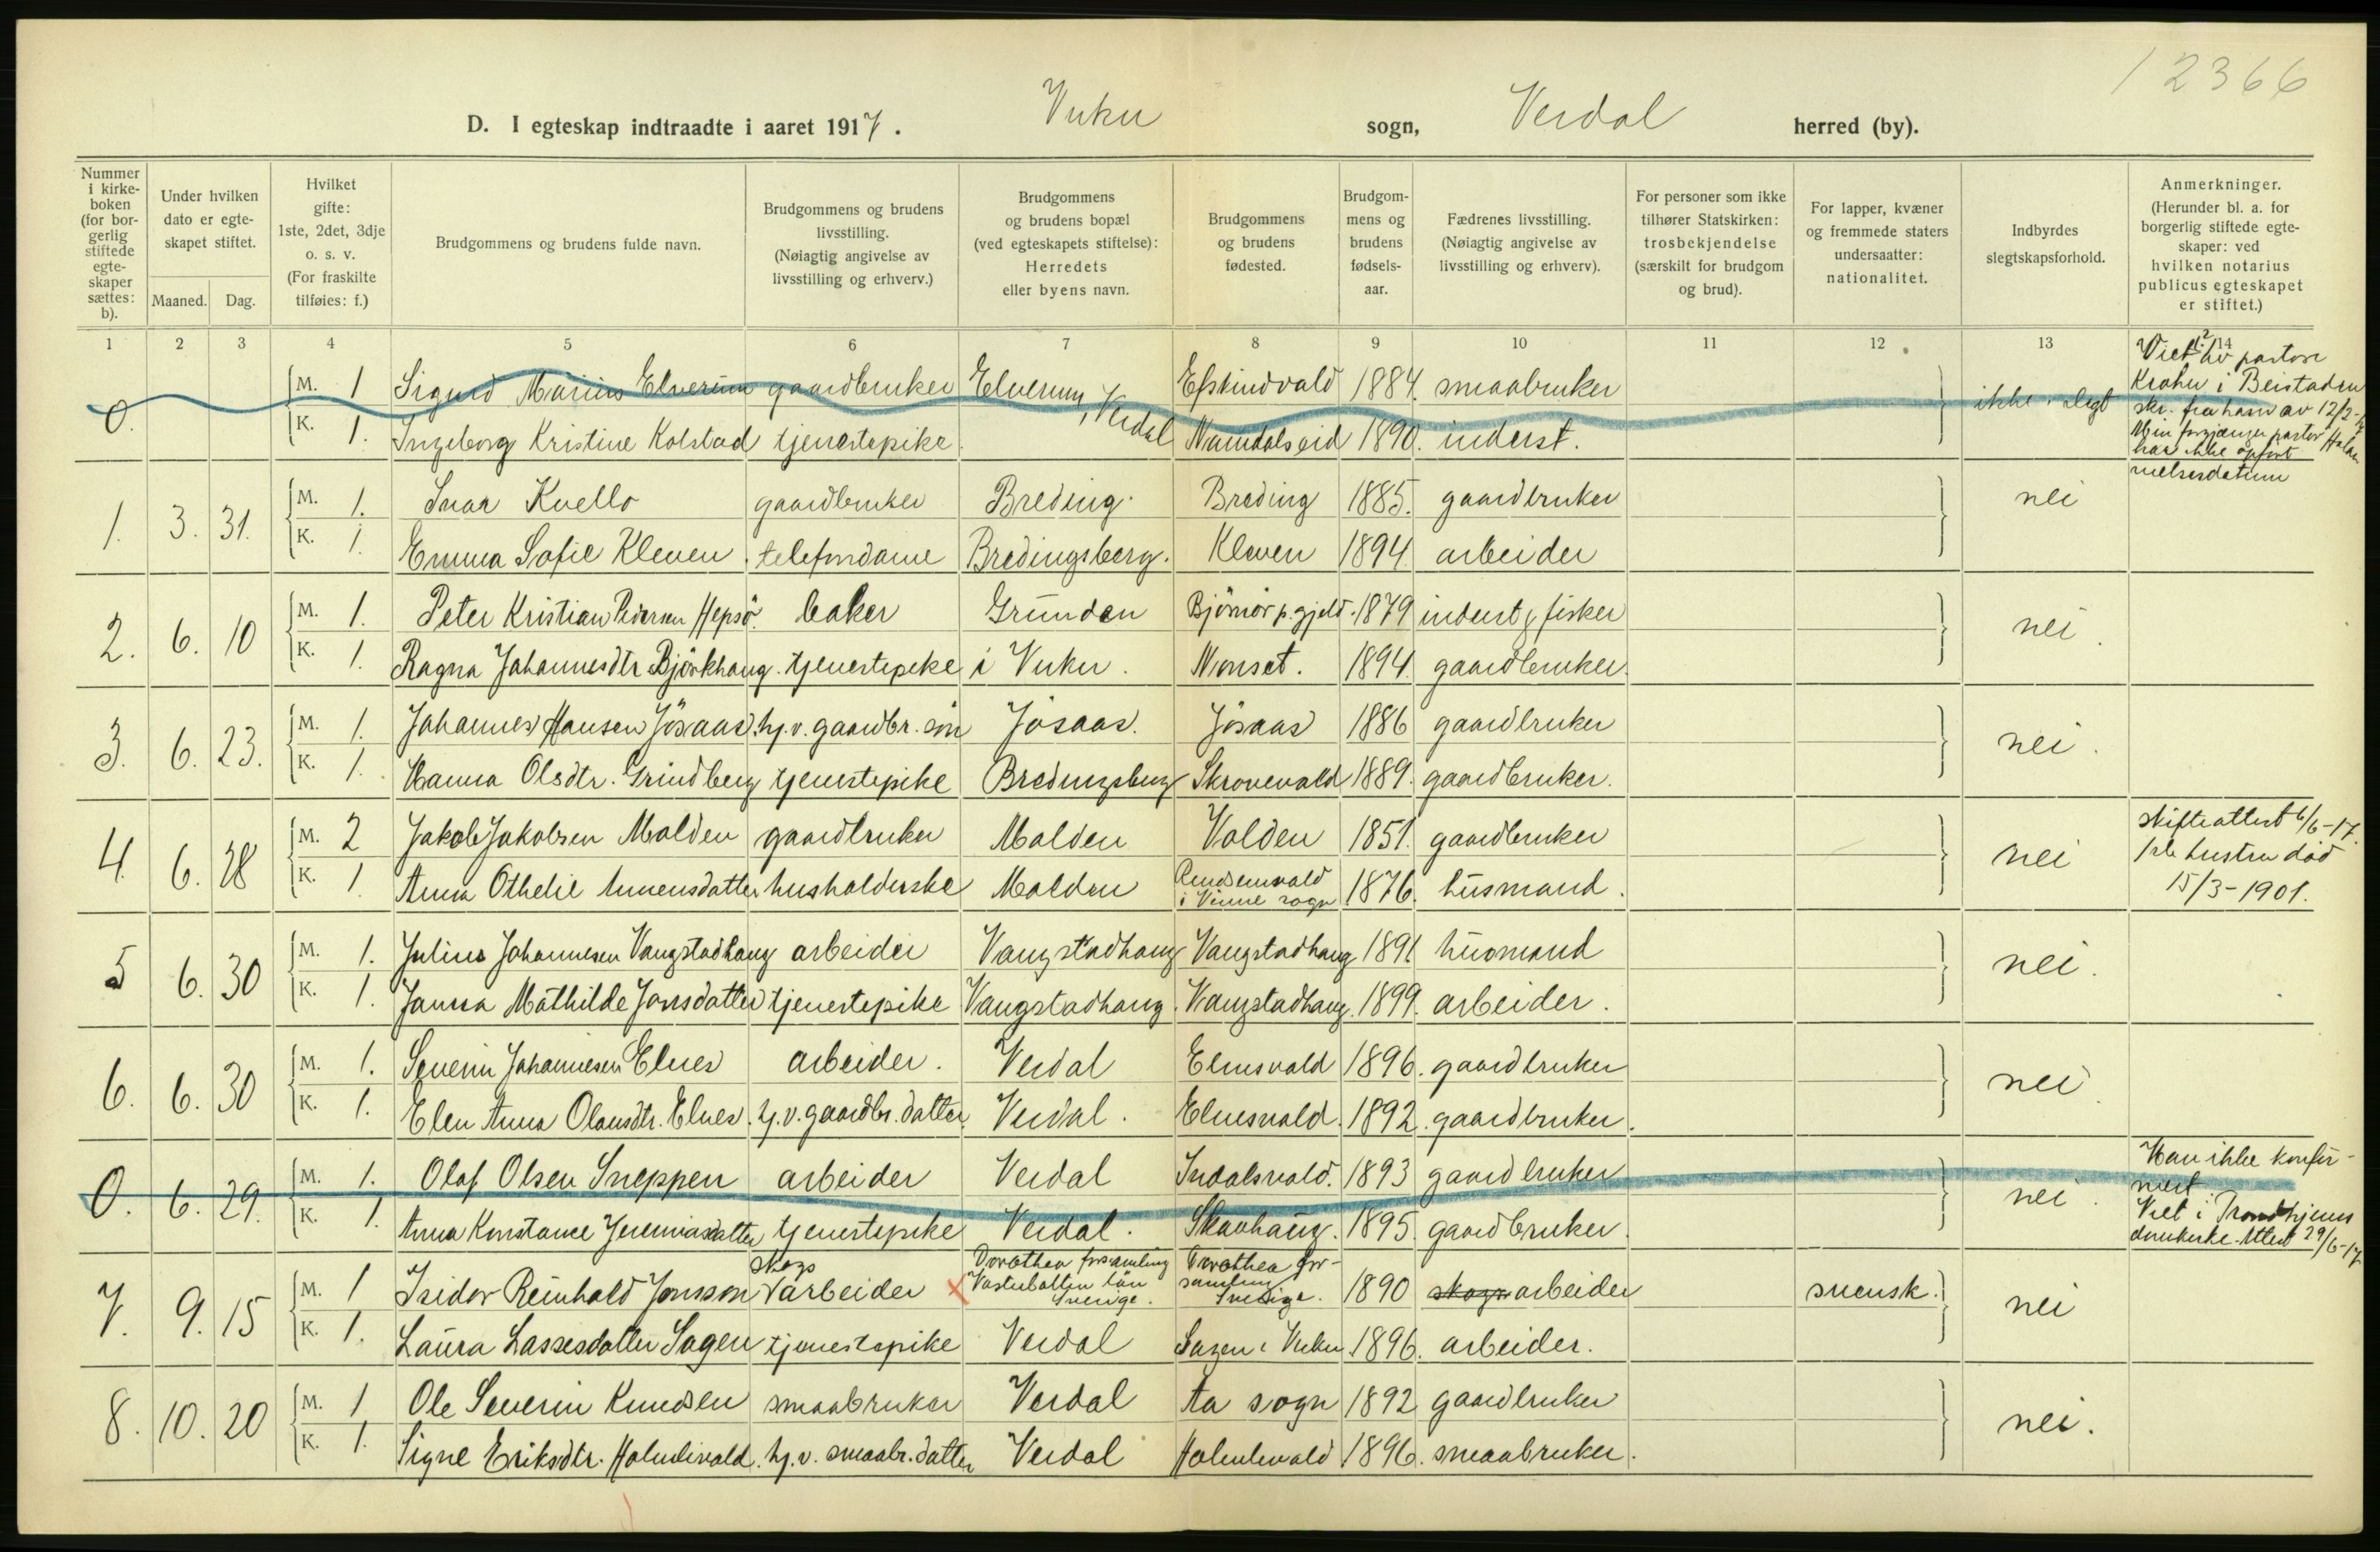 12366
D. I egteskap indtraadte i aaret 1917. Vuku sogn, Verdal herred (by).
Nummer i kirke-boken (for bor-gerlig stiftede egte-skaper sættes: b).
Under hvilken dato er egte-skapet stiftet.
Maaned. Dag.
Hvilket gifte: 1ste, 2det, 3dje o. s. v. (For fraskilte tilføies: f.)
Brudgommens og brudens fulde navn.
Brudgommens og brudens livsstilling. (Nøiagtig angivelse av livsstilling og erhverv.)
Brudgommens og brudens bopæl (ved egteskapets stiftelse): Herredets eller byens navn.
Brudgommens og brudens fødested.
Brudgom-mens og brudens fødsels-aar.
Fædrenes livsstilling. (Nøiagtig angivelse av livsstilling og erhverv).
For personer som ikke tilhører Statskirken: trosbekjendelse (særskilt for brudgom og brud).
For lapper, kvæner og fremmede staters undersaatter: nationalitet.
Indbyrdes slegtskapsforhold.
Anmerkninger. (Herunder bl. a. for borgerlig stiftede egte-skaper: ved hvilken notarius publicus egteskapet er stiftet.)
1 2 3 4 5 6 7 8 9 10 11 12 13 14
0. M. 1 Sigurd Marius Elverum gaardbruker Elverum, Verdal Eskindvald 1884. smaabruker ikke i slegt
K. 1. Ingeborg Kristine Kolstad tjenestepike. Namdalseid 1890. inderst.
Viet av pastor
Krohn i Beistaden
skr. fra ham av 12/2-17
Min forgjænger pastor
har ikke opført
vielsesdatum
1. 3. 31. M. 1. Ivar Kvello gaardbruker Breding. Breding 1885. gaardbruker nei
K. 1. Emma Sofie Kleven. telefondame Bredingsberg. Kleven 1894. arbeider
2. 6. 10 M. 1. Peter Kristian Pedersen Hepsö. baker Grunden Björnör p.gjeld. 1879 inderst & fisker nei.
K. 1. Ragna Johannesdtr. Björkhaug. tjenestepike i Vuku. Nonset. 1894. gaardbruker.
3. 6. 23. M. 1. Johannes Hansen Jösaas. hj.v. gaardbr. sön Jösaas. Jösaas 1886 gaardbruker nei.
K. 1. Hanna Olsdtr. Grindberg tjenestepike Bredingsberg Skrovevald 1889. gaardbruker.
4. 6. 28 M. 2 Jakob Jakobsen Molden gaardbruker Molden Volden 1851. gaardbruker nei
K. 1. Anna Othelie husholderske Molden i Vinne sogn 1876. husmand.
skifteattest 6/6-17.
1ste hustru död
15/3-1901.
5 6. 30 M. 1. Julius Johannesen Vangstadhaug arbeider Vangstadhaug Vangstadhaug 1891. husmand nei.
K. 1. Janna Mathilde Jonsdatter tjenestepike Vangstadhaug. Vangstadhaug. 1899. arbeider.
6. 6. 30 M. 1. Severin Johannesen Elnes arbeider. Verdal Elnesvald 1896. gaardbruker nei.
K. 1. Elen Anna Olausdtr. Elnes. hj.v. gaardbr. datter. Verdal. Elnesvald. 1892. gaardbruker.
0. 6. 29. M. 1. Olaf Olsen Sneppen arbeider Verdal Indalsvald. 1893 gaardbruker nei.
K. 1. Anna Konstance Jeremiasdatter tjenestepike Verdal. Skavhaug. 1895. gaardbruker.
Han ikke konfir-
mert
Viet i Trondhjems
domkirke. Attest 29/6-17
7. 9. 15 M. 1 Isidor Reinhold Jonsson skogsarbeider x Dorothea forsamling Vasterbotten län Sverige. Dorothea for-samling Sverige. 1890 skogs arbeider svensk. nei
K. 1. Laura Lassesdatter Sagen tjenestepike Verdal Sagen i Vuku. 1896. arbeider.
8. 10. 20 M. 1 Ole Severin Knudsen smaabruker Verdal Aa sogn 1892 gaardbruker nei.
K. 1. Signe Eriksdtr. Holmlivald. hj.v. smaabr. datter Verdal Holmlivald 1896. smaabruker.